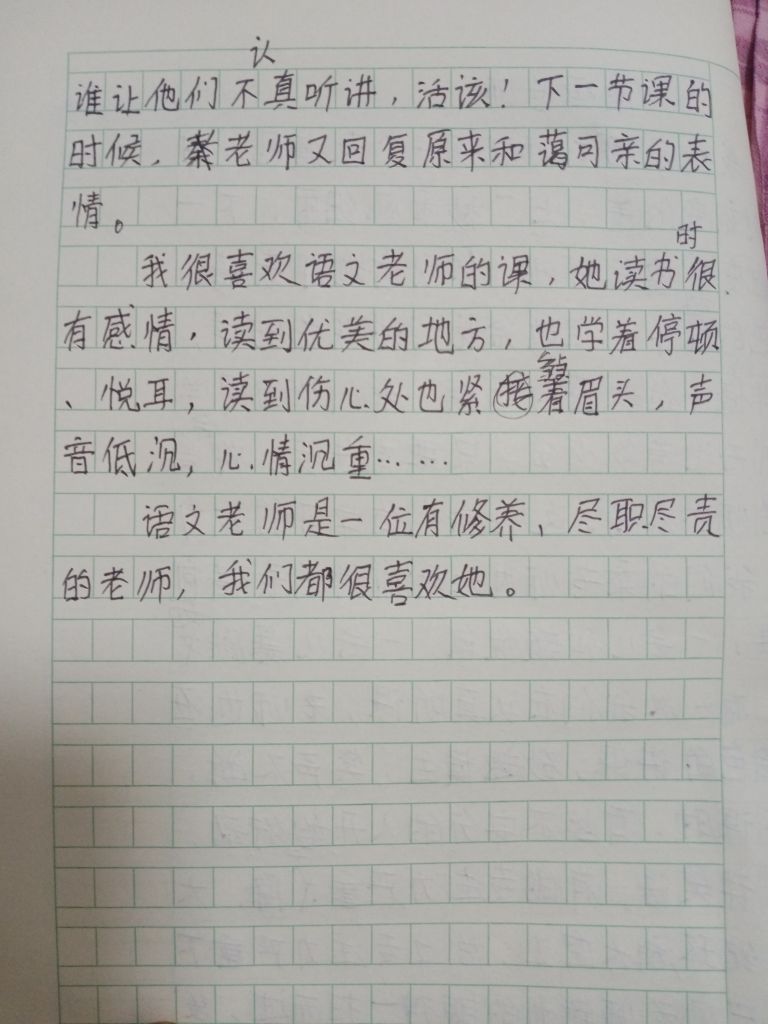 谁让他们不认真听讲，活该！下一节课的
时候，秦老师又回复原来和蔼可亲的表
情。
我很喜欢语文老师的课，她读书时很
有感情，读到优美的地方，也学着停顿
、悦耳，读到伤心处也紧皱着眉头，声
音低沉，心情沉重……
语文老师是一位有修养、尽职尽责
的老师，我们都很喜欢她。